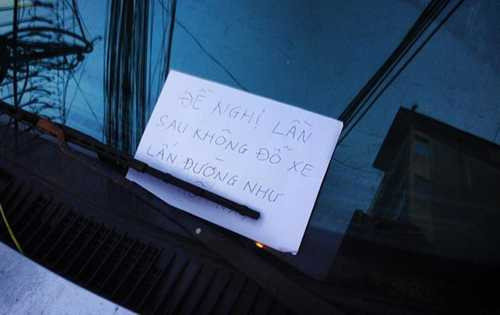 ĐỀ NGHỊ LẦN
SAU KHÔNG ĐỖ XE
LẤN ĐƯỜNG NHƯ